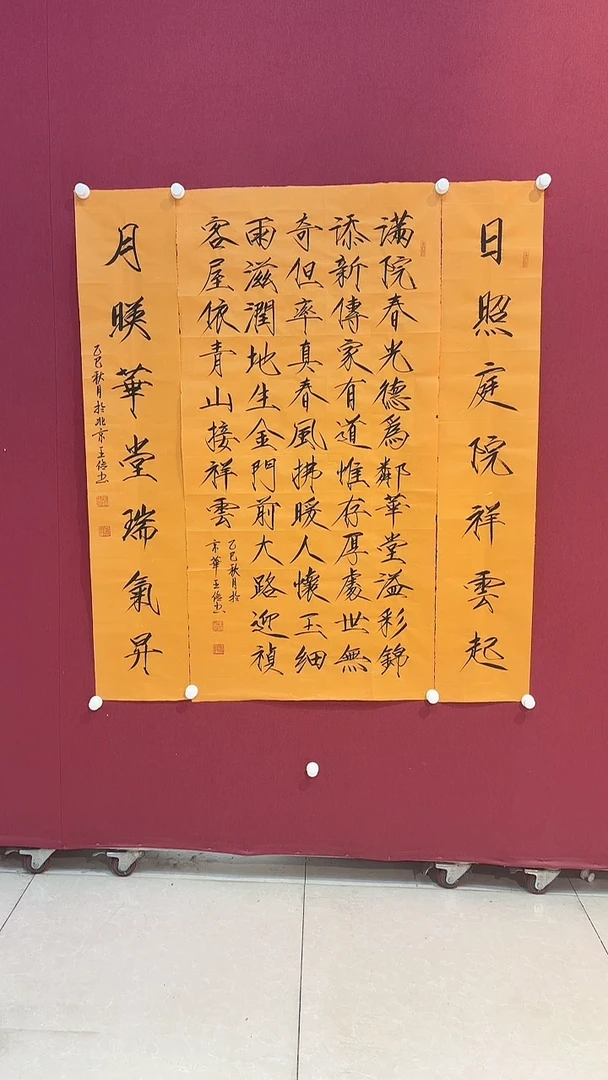 日照庭院祥雲起
满院春光德為鄰華堂溢彩錦
添新傳家有道惟存厚處世無
奇但率真春風拂暖人懷玉細
雨滋潤地生金門前大路迎禎
客屋依青山接祥雲
乙巳秋月於
京華王书
月暎華堂瑞氣昇
乙巳秋月於北京王书